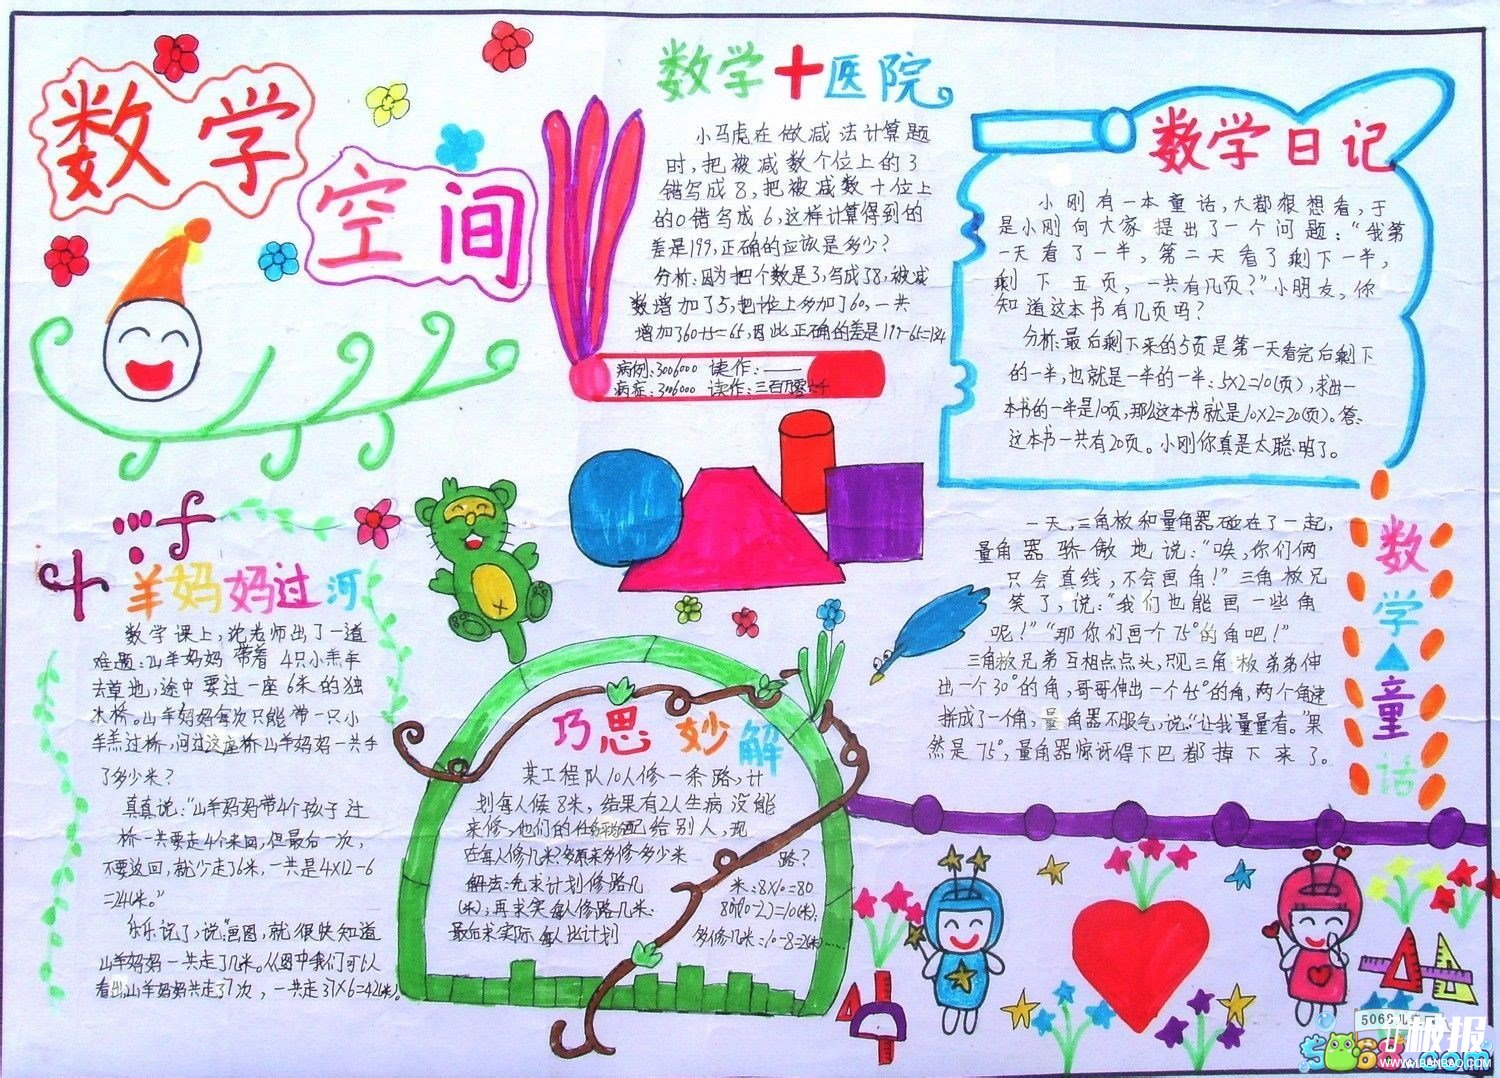 数学
空间
数学十医院
小马虎在做减法计算题
时,把被减数个位上的3
错写成8,把被减数十位上
的0错写成6,这样计算得到的
差是199,正确的应该是多少?
分析:因为把个数是3,写成了8,被减
数增加了5,把十位上多加了60,一共
增加了60+5=65,因此正确的差是199-65=134
病例:3006000 读作:——
病症:3006000 读作:三百万零六千
数学日记
小刚有一本童话,大都很想看,于
是小刚向大家提出了一个问题:“我第
一天看了一半,第二天看了剩下一半,
剩下五页,一共有几页?”小朋友,你
知道这本书有几页吗?
分析:最后剩下来的5页是第一天看完后剩下
的一半,也就是一半的一半:5X2=10(页),求出一
本书的一半是10页,那么这本书就是10X2=20(页)。答:
这本书一共有20页。小刚你真是太聪明了。
羊妈妈过河
数学课上,沈老师出了一道
难题:山羊妈妈带着4只小羔羊
去草地,途中要过一座6米的独
木桥。山羊妈妈每次只能带一只小
羊羔过桥,问过这座桥山羊妈妈一共走
了多少米?
真真说:“山羊妈妈带4个孩子过
桥一共要走4个来回,但最后一次,
不要返回,就少走了6米,一共是4X12-6
=42(米)。”
乐乐说了,说:“画图,就很快知道
山羊妈妈一共走了几米。从图中我们可以
看出山羊妈妈共走了7次,一共走了7X6=42(米)。
巧思妙解
某工程队10人修一条路,计
划每人修8米,结果有2人生病没能
来修,他们的任务平均分配给别人,现
在每人修几米?多原来多修多少米
路?
解法:先求计划修路几
米:8X10=80
(米);再求实每人修路几米:
80÷(10-2)=10(米);
最后求实际每人比计划
多修几米:10-8=2(米)……
数学童话
一天,三角板和量角器碰在了一起,
量角器骄傲地说:“唉,你们俩
只会直线,不会画角!”三角板兄
笑了,说:“我们也能画一些角
呢!”“那你们画个75°的角吧!”
三角板兄弟互相点点头,只见三角板弟弟伸
出一个30°的角,哥哥伸出一个45°的角,两个角速
拼成了一个角,量角器不服气,说:“让我量量看。”果
然是75°,量角器惊讶得下巴都掉下来了。
5068儿
板报
WWW.1BANBAO.COM
68.com